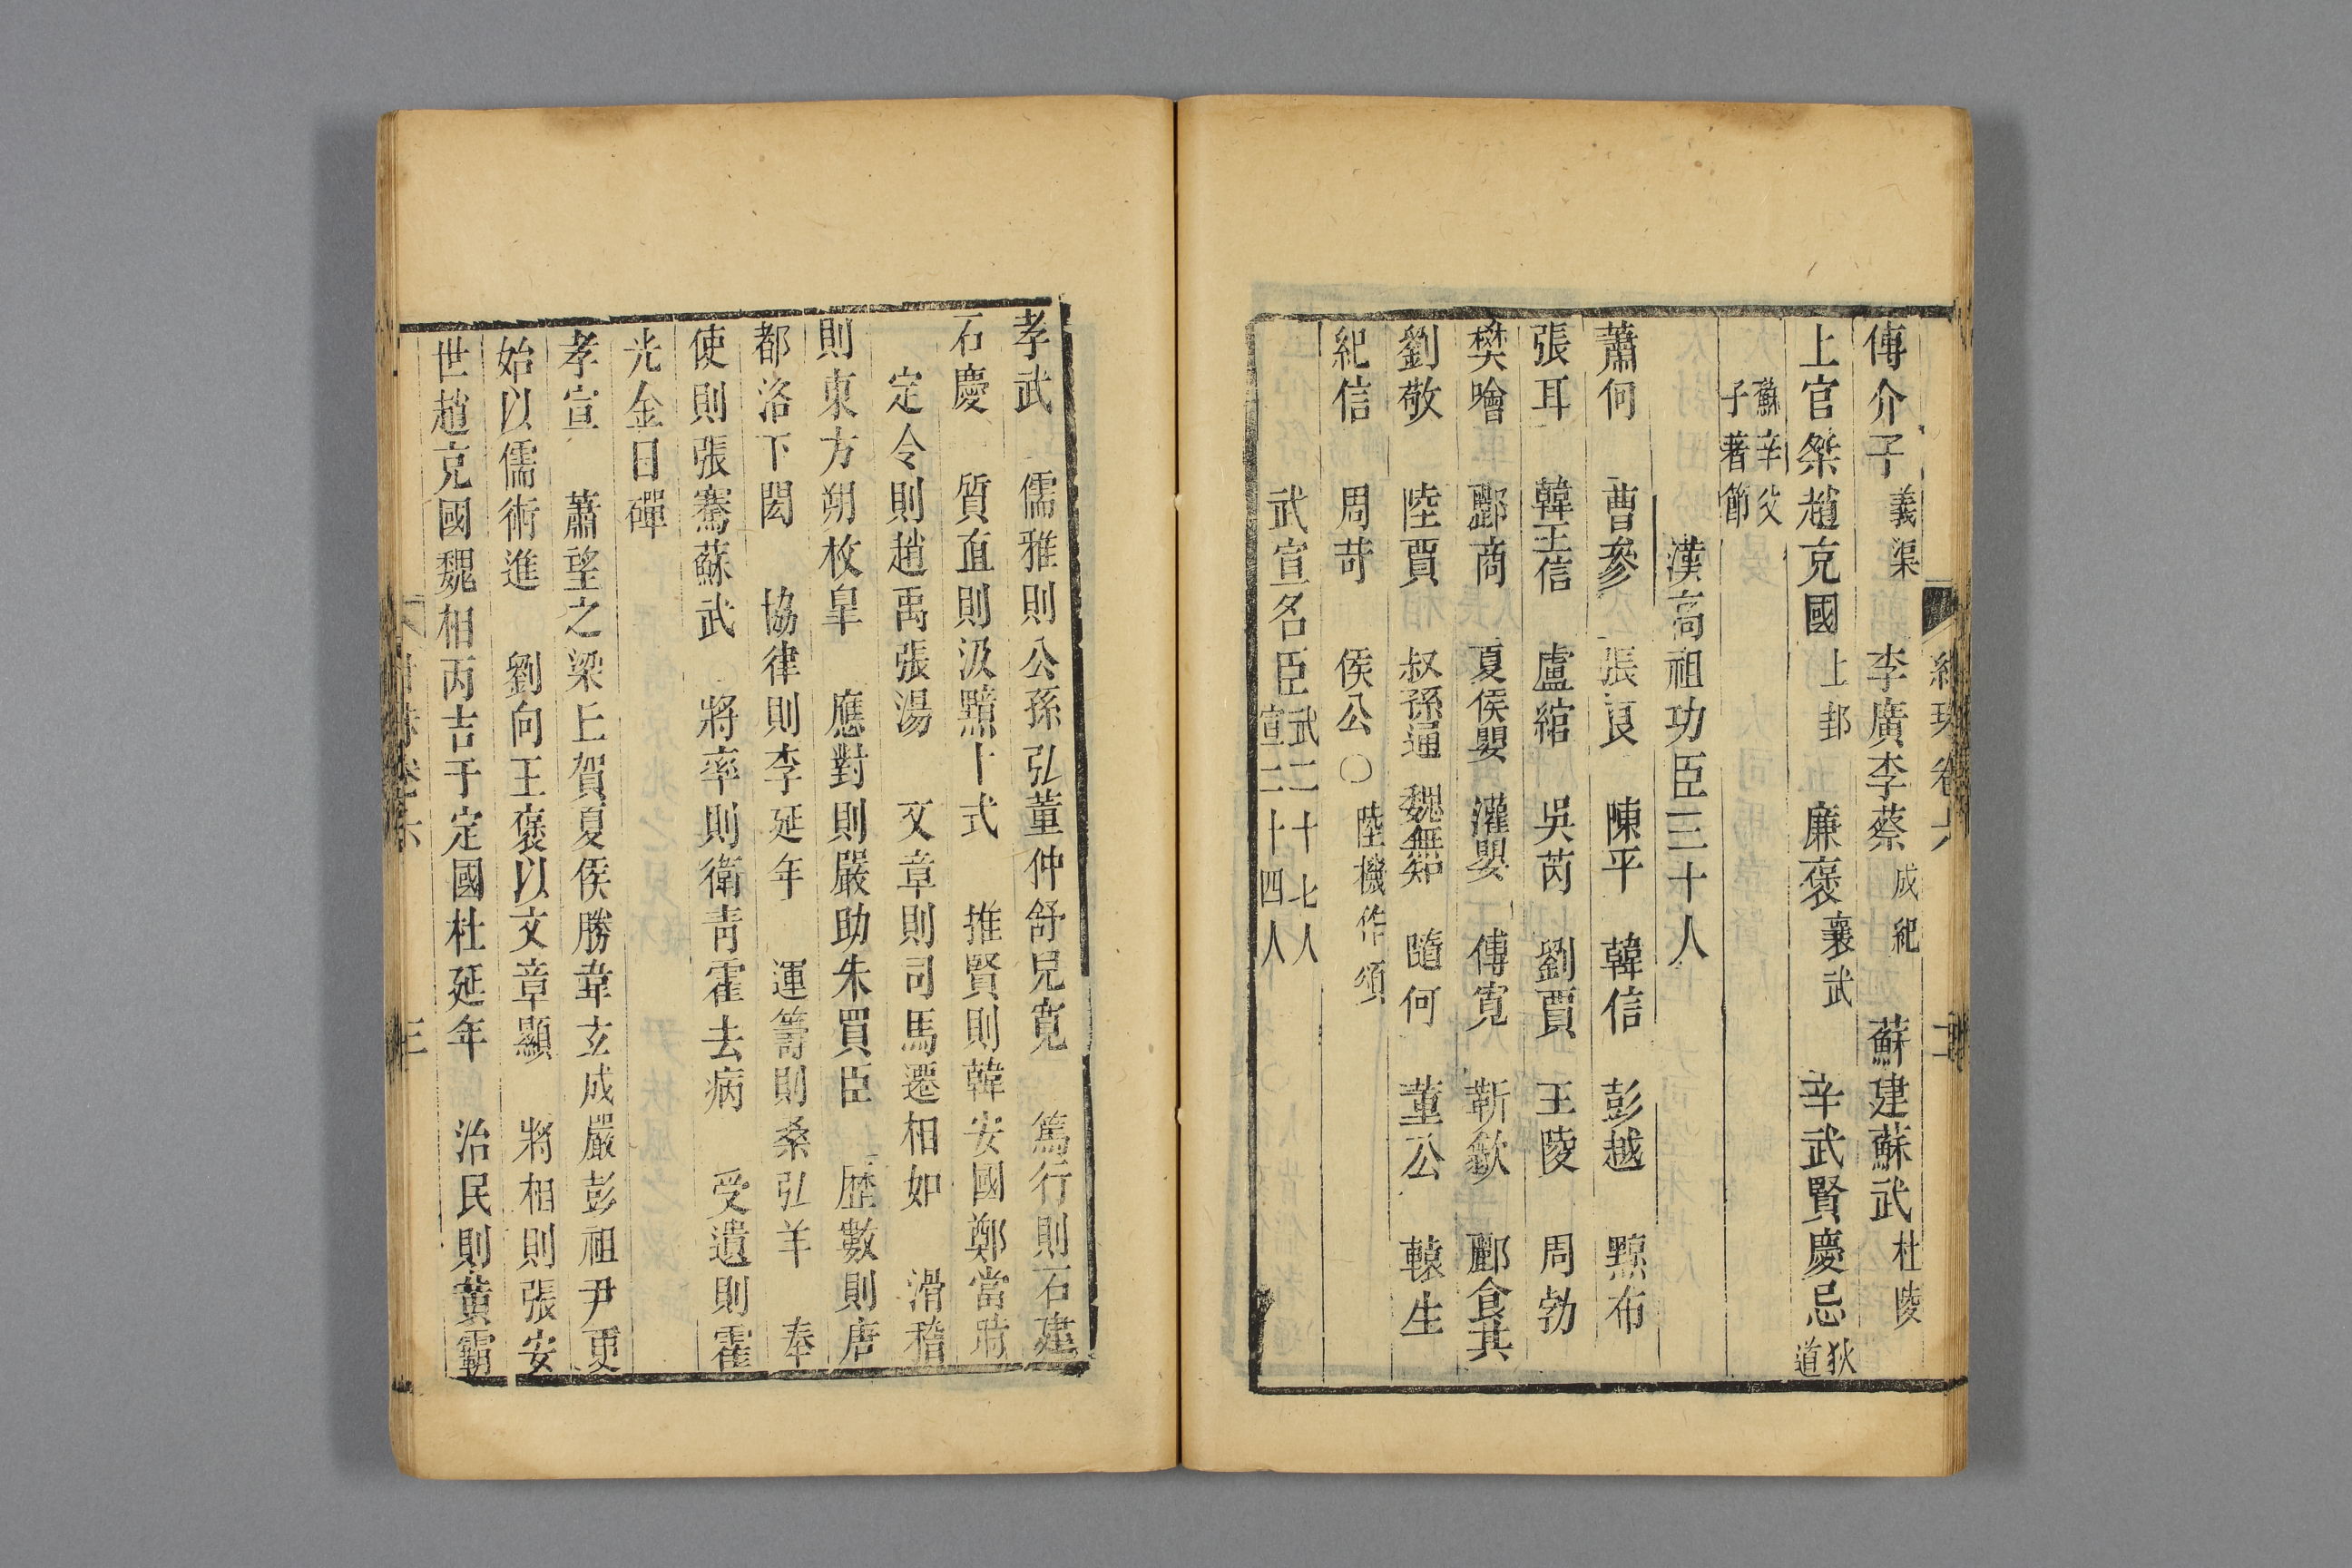 傅介子義渠　李廣李蔡成紀　蘇建蘇武杜陵
上官桀趙充國上邽　廉褒襄武　辛武賢慶忌狄道
蘇辛父子著節
漢高祖功臣三十一人
蕭何　曹參　張良　陳平　韓信　彭越　黥布
張耳　韓王信　盧綰　吳芮　劉賈　王陵　周勃
樊噲　酈商　夏侯嬰　灌嬰　傅寬　靳歙　酈食其
劉敬　陸賈　叔孫通　魏無知　隨何　董公　轅生
紀信　周苛　侯公〇陸機作頌
武宣名臣武二十七人宣二十四人
孝武　儒雅則公孫弘董仲舒兒寬　篤行則石建
石慶　質直則汲黯卜式　推賢則韓安國鄭當時
定令則趙禹張湯　文章則司馬遷相如　滑稽
則東方朔枚皐　應對則嚴助朱買臣　歷數則唐
都洛下閎　協律則李延年　運籌則桑弘羊　奉
使則張騫蘇武　將率則衛青霍去病　受遺則霍
光金日磾
孝宣　蕭望之梁丘賀夏侯勝韋玄成嚴彭祖尹更
始以儒術進　劉向王褒以文章顯　將相則張安
世趙充國魏相丙吉于定國杜延年　治民則黃霸